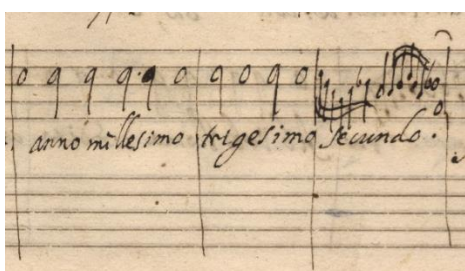 anno millesimo trigesimo secundo.